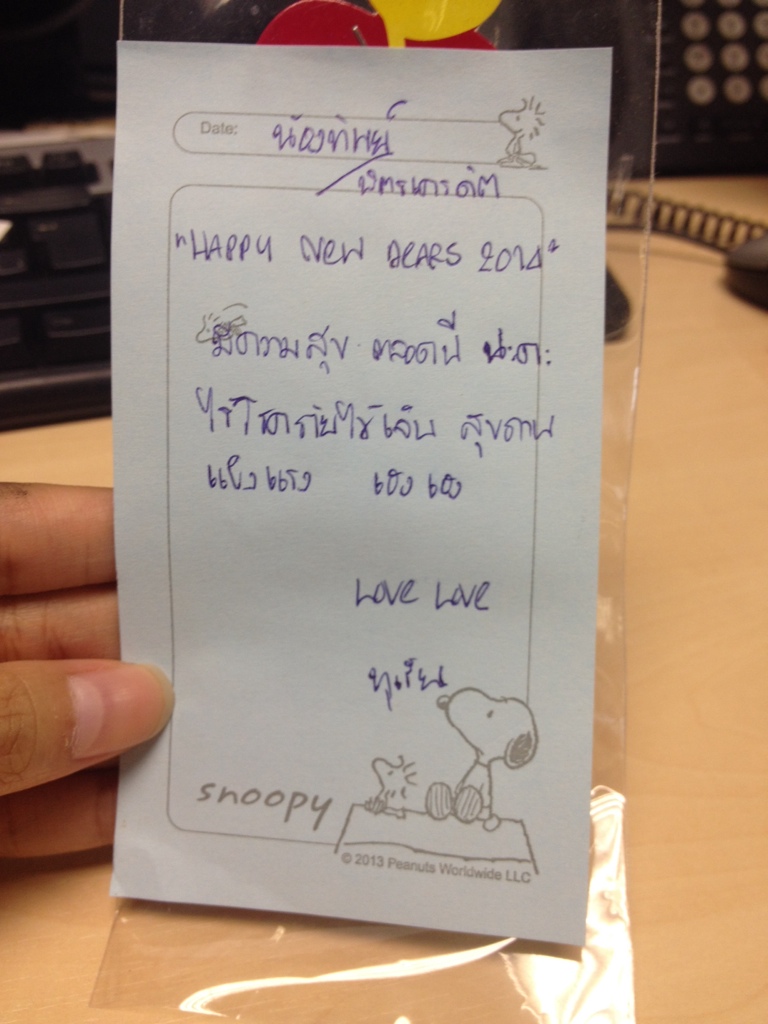 Date: น้องทิพย์
/บัตรเครดิต
"HAPPY NEW YEARS 2014"
มีความสุข ตลอดปี นะคะ
ไร้โรคภัยไร้เจ็บ สุขภาพ
แข็งแรง เฮง เฮง
LOVE LOVE
ทุเรียน
snoopy
© 2013 Peanuts Worldwide LLC